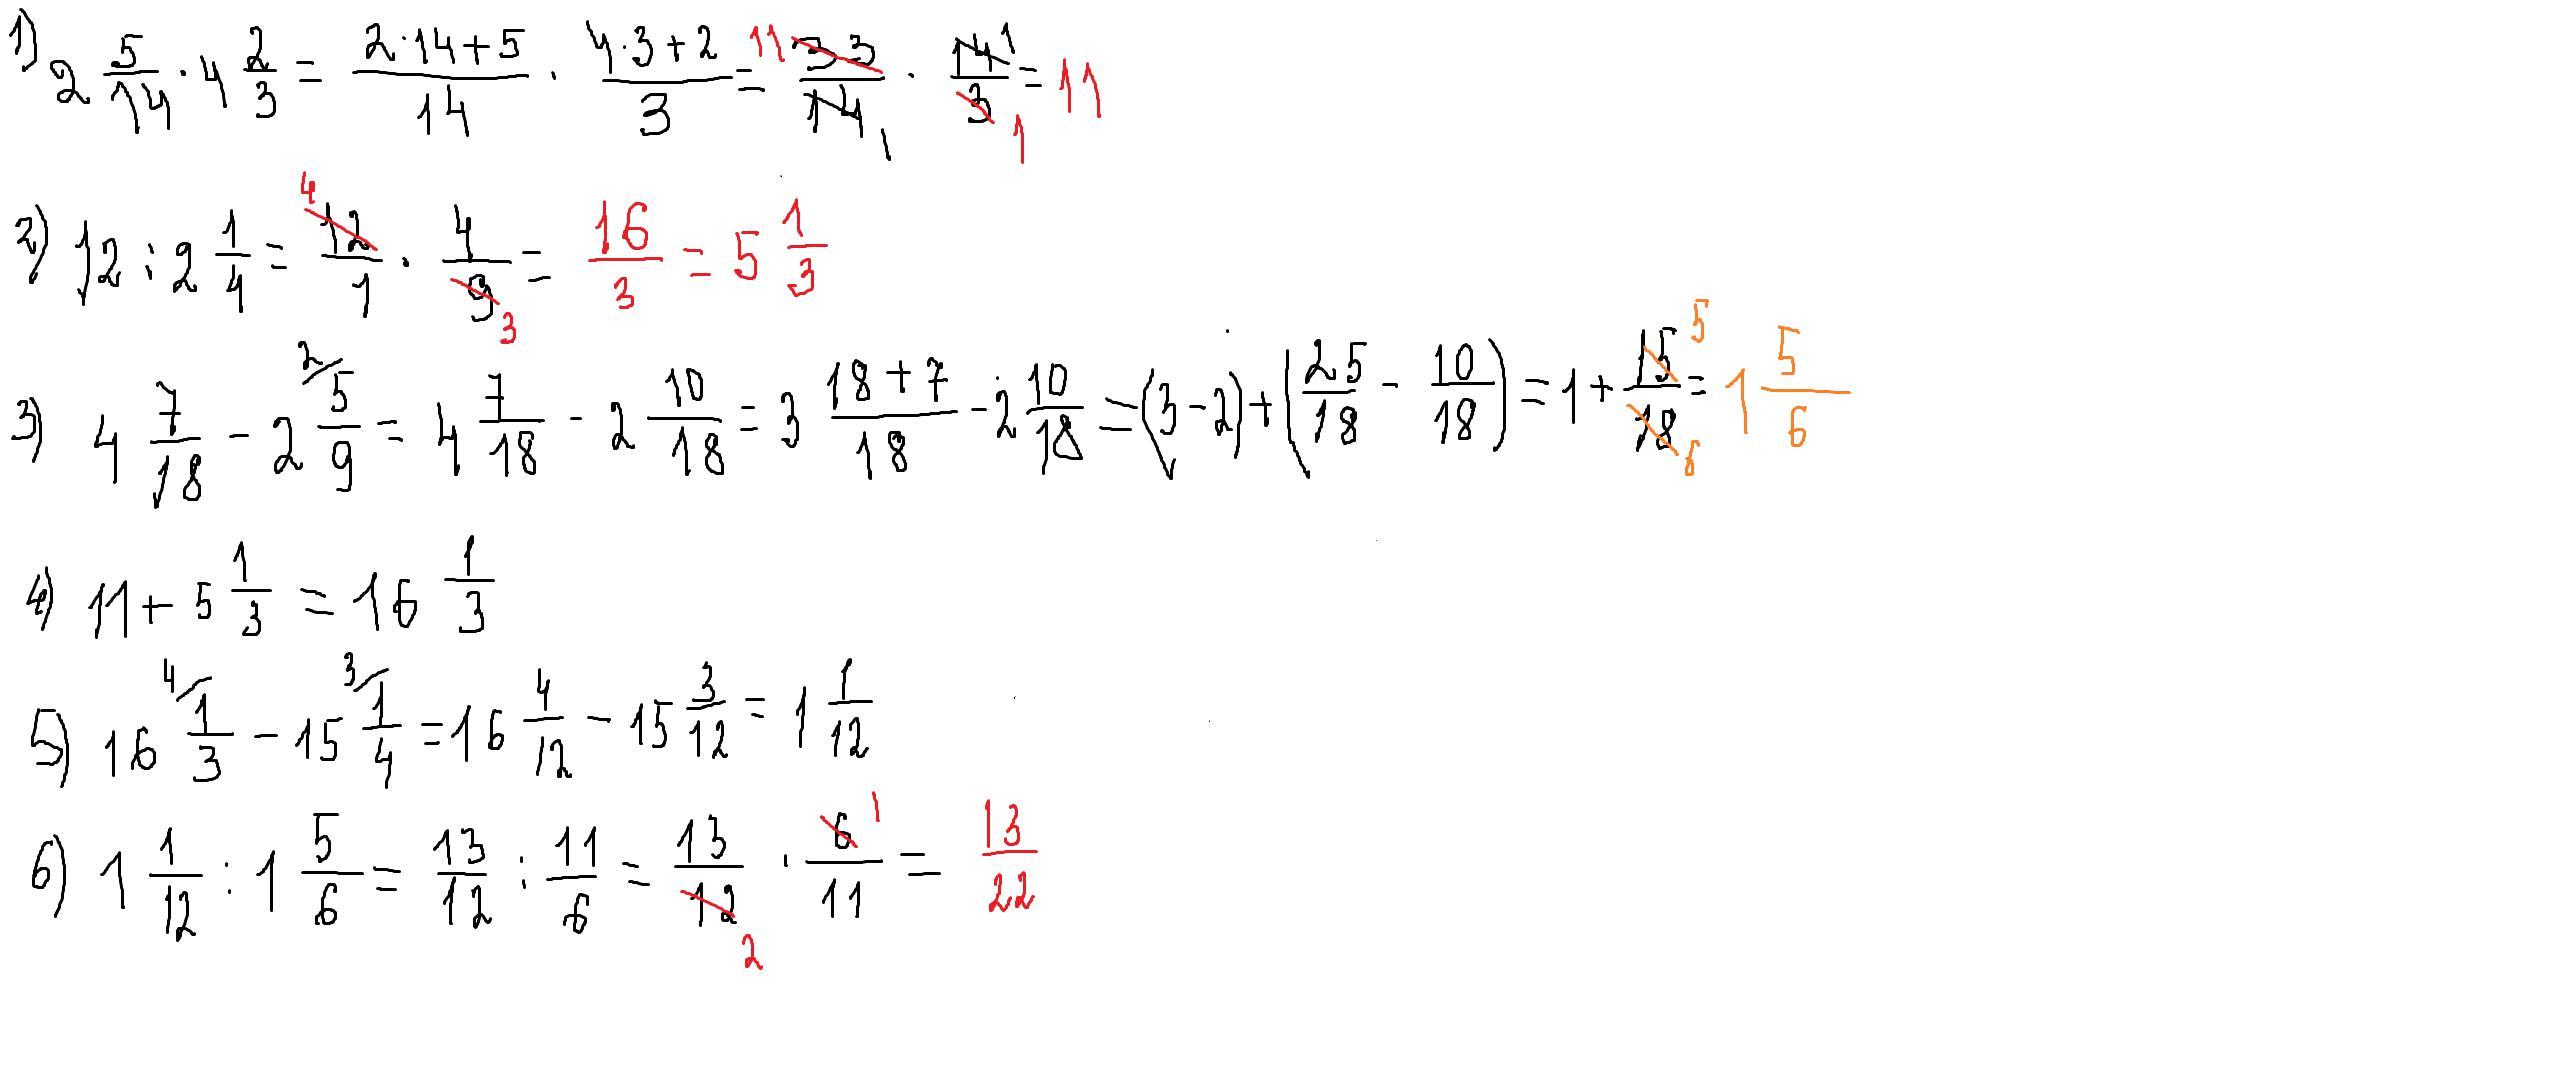 1) 2 5/14 · 4 2/3 = (2·14+5)/14 · (4·3+2)/3 = 11 33/14 1 · 14 1/3 1 = 11
2) 12 : 2 1/4 = 4 12/1 · 4/9 3 = 16/3 = 5 1/3
3) 4 7/18 - 2 2/ 5/9 = 4 7/18 - 2 10/18 = 3 (18+7)/18 - 2 10/18 = (3-2) + (25/18 - 10/18) = 1 + 15 5/18 6 = 1 5/6
4) 11 + 5 1/3 = 16 1/3
5) 16 4/ 1/3 - 15 3/ 1/4 = 16 4/12 - 15 3/12 = 1 1/12
6) 1 1/12 : 1 5/6 = 13/12 : 11/6 = 13/12 2 · 6 1/11 = 13/22